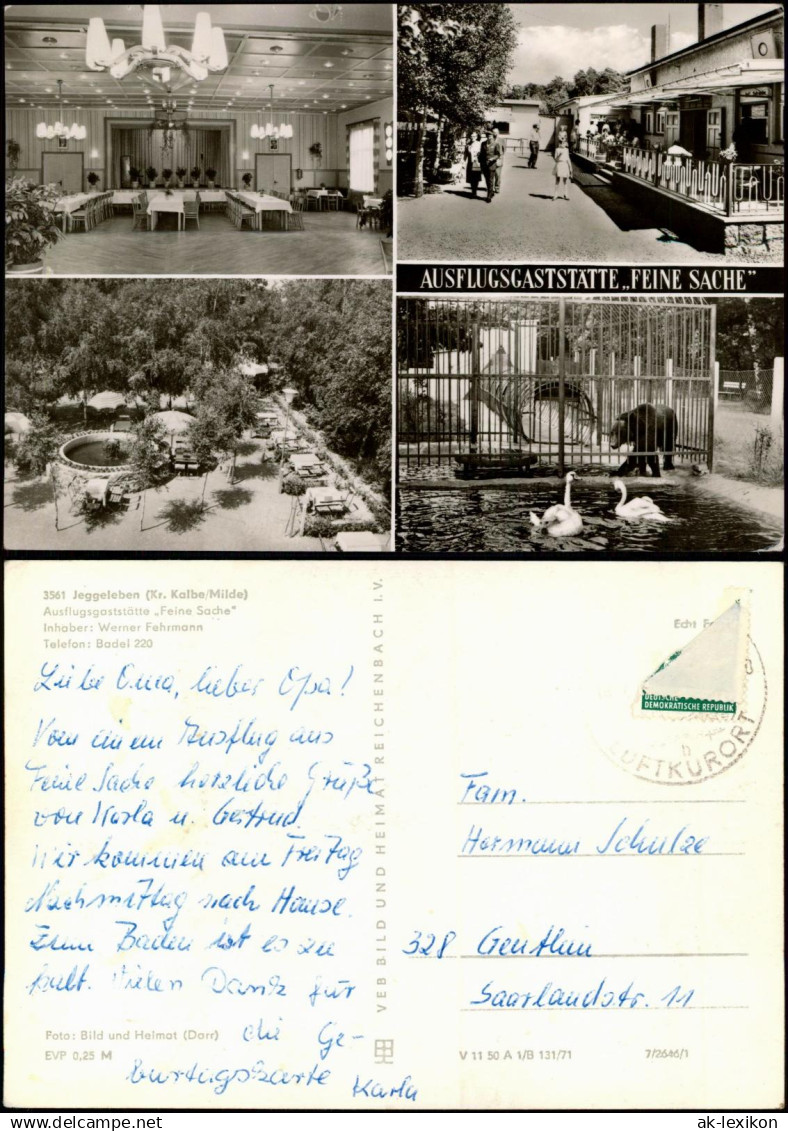 AUSFLUGSGASTSTÄTTE „FEINE SACHE"
3561 Jeggeleben (Kr. Kalbe/Milde)
Ausflugsgaststätte „Feine Sache"
Inhaber: Werner Fehrmann
Telefon: Badel 220
Liebe Oma, lieber Opa!
Von einem Ausflug aus
Feine Sache herzliche Grüße
von Karla u. Gertrud.
Wir kommen am Freitag
Nachmittag nach Hause.
Zum Baden ist es zu
kalt. Vielen Dank für
die Ge-
burtagskarte
Karla
Foto: Bild und Heimat (Darr)
EVP 0,25 M
VEB BILD UND HEIMAT REICHENBACH I.V.
Echt
DEUTSCHE
DEMOKRATISCHE REPUBLIK
b
LUFTKURORT
Fam.
Hermann Schulze
328 Genthin
Saarlandstr. 11
V 11 50 A 1/B 131/71
7/2646/1
oldthing
ak-lexikon
© ak-lexikon.de